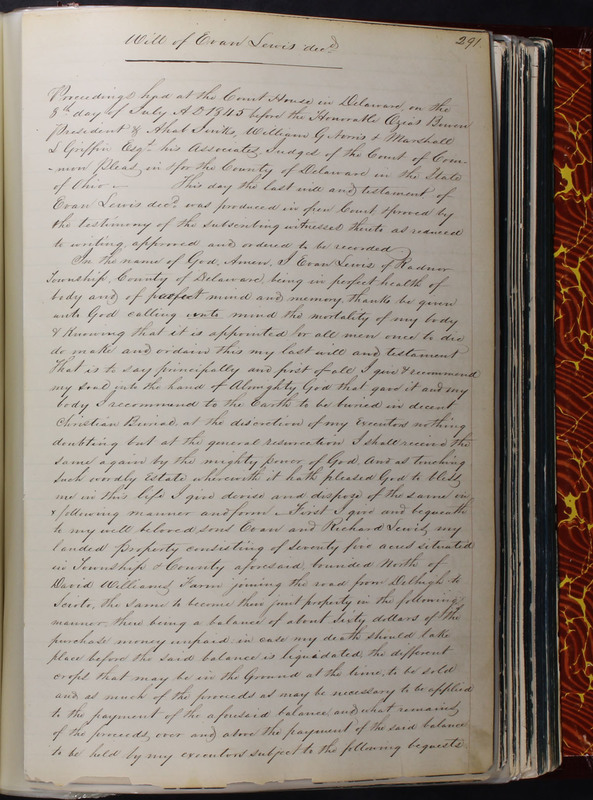 Will of Evan Lewis decd
291
Proceedings had at the Court House in Delaware, on the
8th day of July A D 1845 before the Honorable Ozias Bowen
President & Ahab Jinks, William G Norris & Marshall
L Griffin Esqrs his Associates, Judges of the Court of Com-
-mon Pleas, in & for the County of Delaware in the State
of Ohio - This day the last will and testament of
Evan Lewis decd was produced in open Court & proved by
the testimony of the subscribing witnesses thereto as reduced
to writing, approved and ordered to be recorded
In the name of God, Amen. I Evan Lewis of Radnor
Township, County of Delaware, being in perfect health of
body and of perfect mind and memory, thanks be given
unto God calling unto mind the mortality of my body
& Knowing that it is appointed for all men once to die
do make and ordain this my last will and testament
That is to say principally and first of all, I give & recommend
my soul into the hand of Almighty God that gave it and my
body I recommend to the Earth to be buried in decent
Christian Burial, at the discretion of my Executors nothing
doubting but at the general resurrection I shall receive the
same again by the mighty power of God. And as touching
such wordly Estate wherewith it hath pleased God to bless
me in this life I give devise and dispose of the same in
& following manner and form - First I give and bequeath
to my well beloved sons Evan and Richard Lewis, my
landed Property consisting of Seventy five acres situated
in Township & County aforesaid, bounded North of
David Williams Farm joining the road from Delhigh to
Scioto, the same to become their joint property in the following
manner, there being a balance of about Sixty dollars of the
purchase money unpaid in case my death should take
place before the said balance is liquidated the different
crops that may be in the Ground at the time, to be sold
and as much of the proceeds as may be necessary to be applied
to the payment of the aforesaid balance, and what remains
of the proceeds, over and above the payment of the said balance
to be held by my executors subject to the following bequests